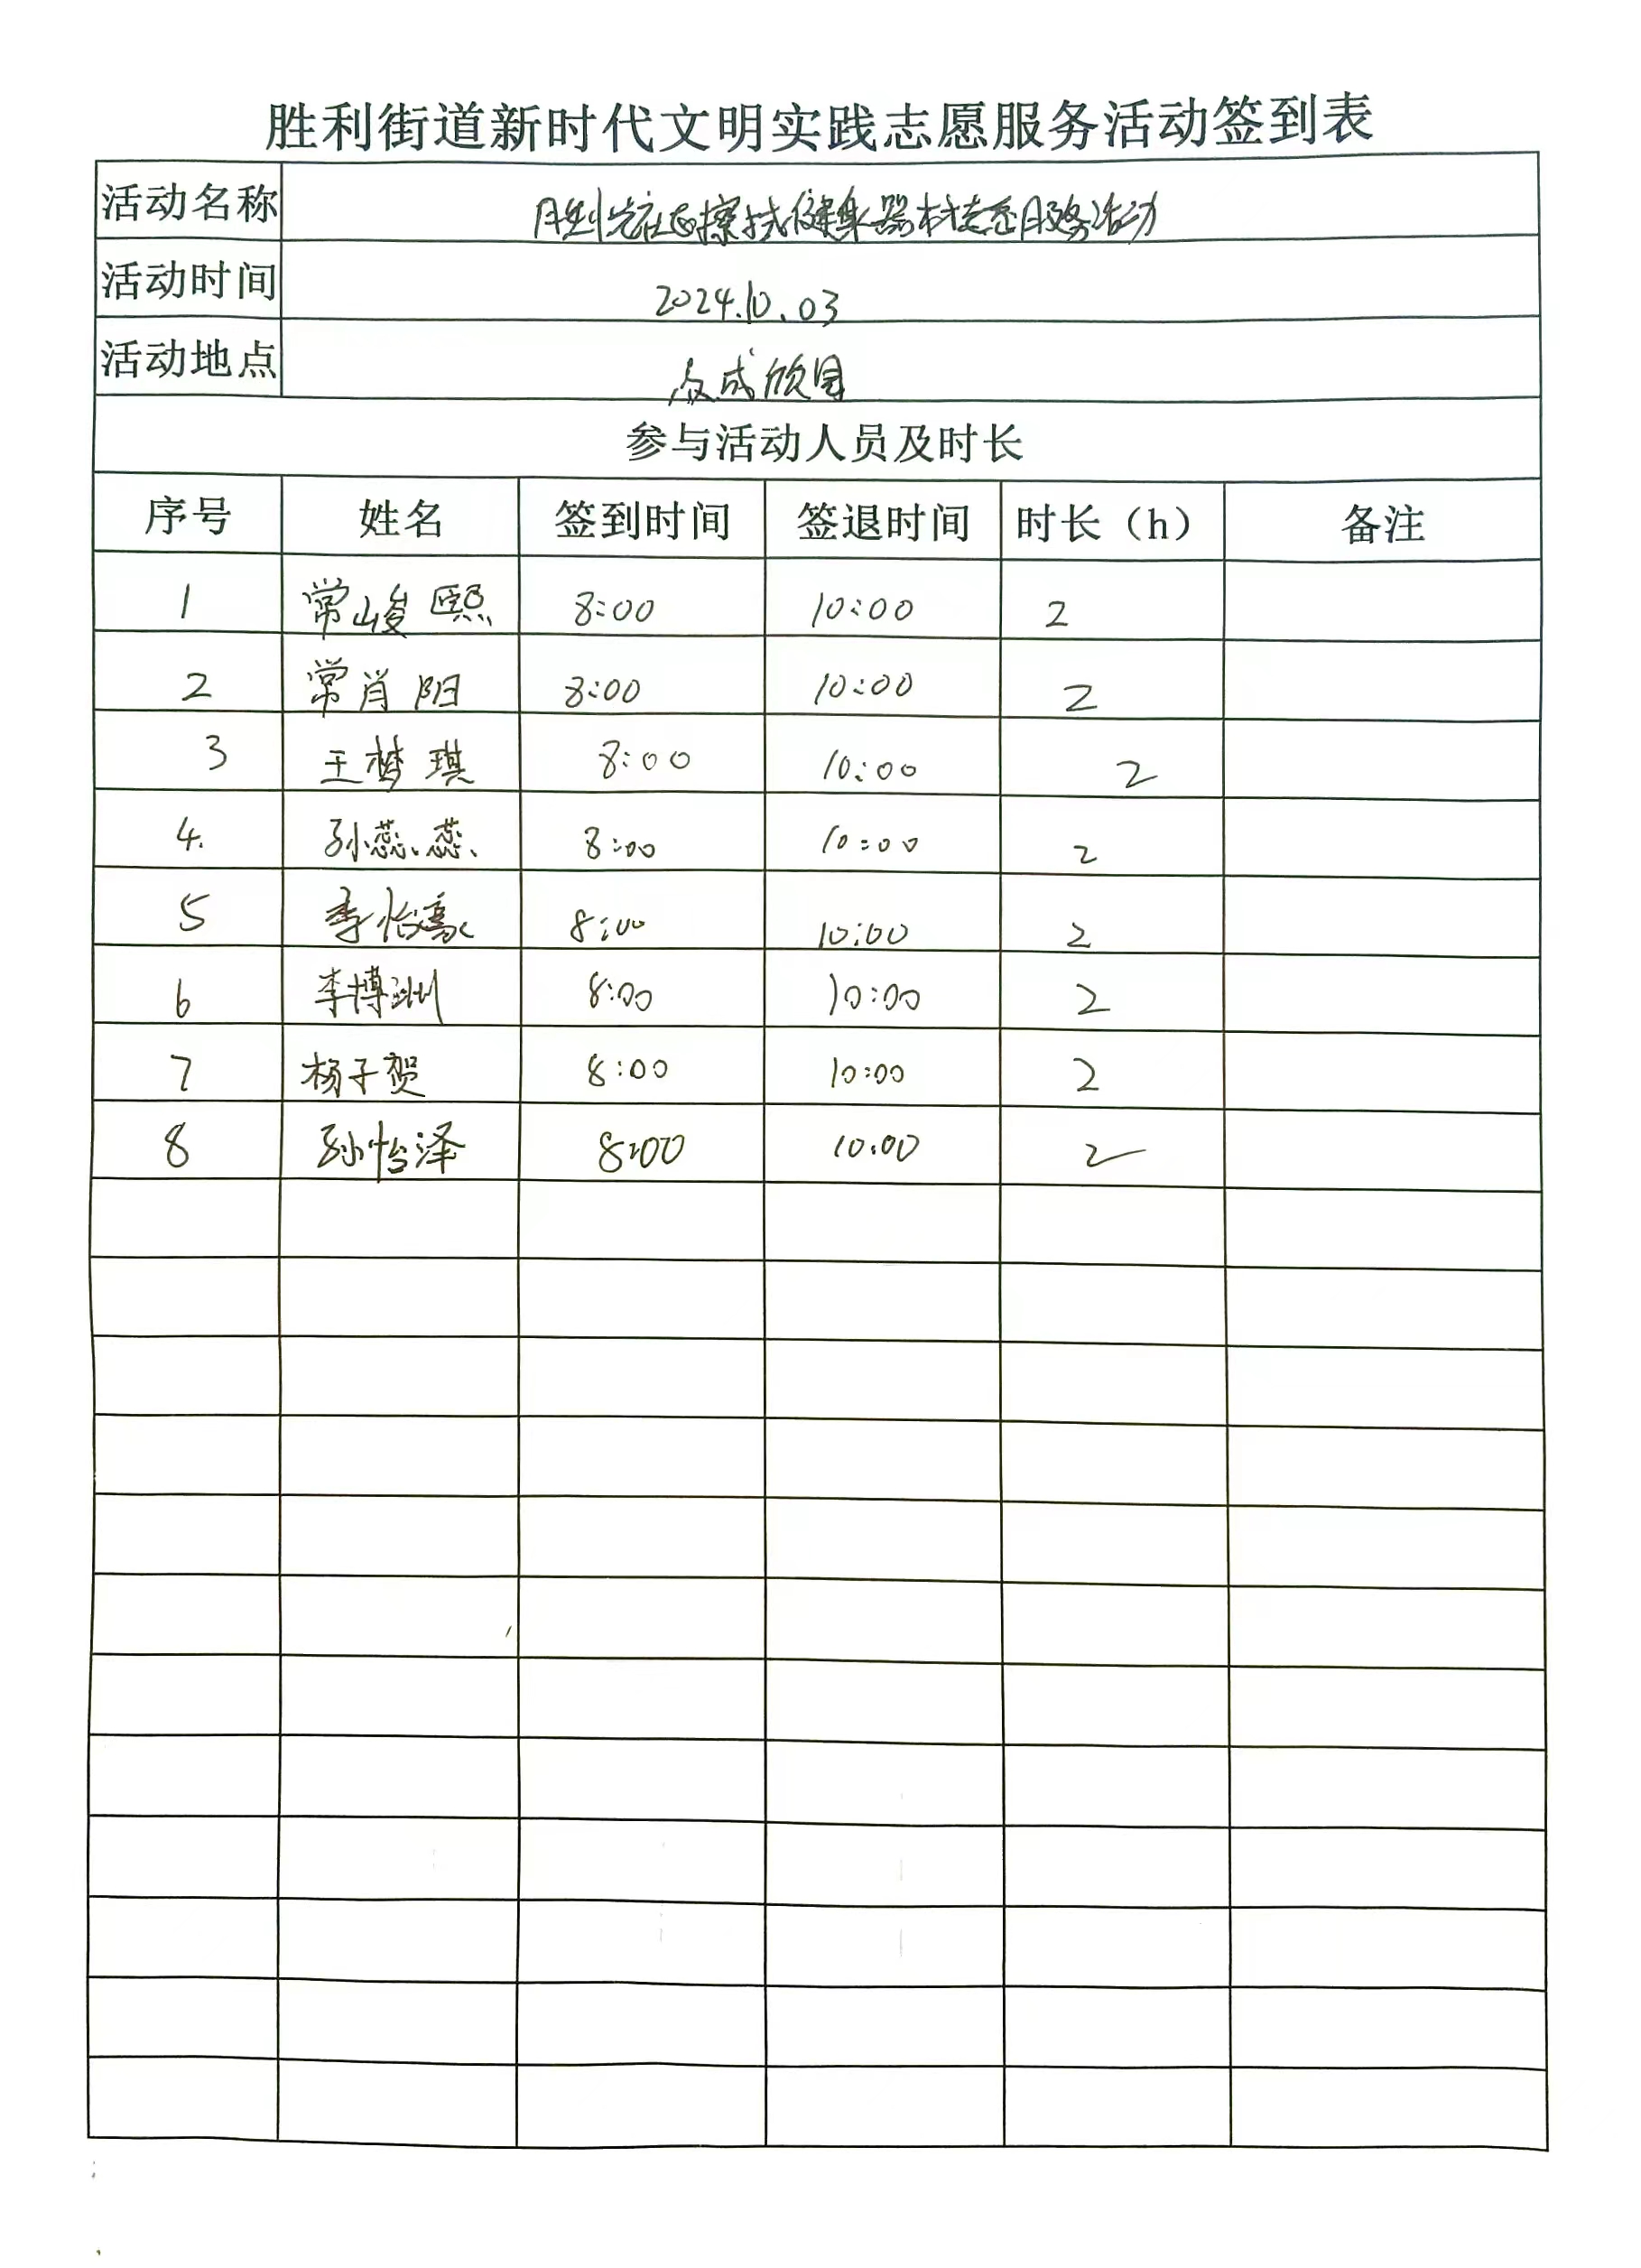 胜利街道新时代文明实践志愿服务活动签到表
活动名称 擦拭健身器材志愿服务活动
活动时间 2024.10.03
活动地点 成欣园
参与活动人员及时长
序号 姓名 签到时间 签退时间 时长（h） 备注
1 常峻熙 8:00 10:00 2
2 常肖阳 8:00 10:00 2
3 王梦琪 8:00 10:00 2
4. 孙蕊蕊 8:00 10:00 2
5 李怡 8:00 10:00 2
6 李博洲 8:00 10:00 2
7 杨子贺 8:00 10:00 2
8 孙怡泽 8:00 10:00 2